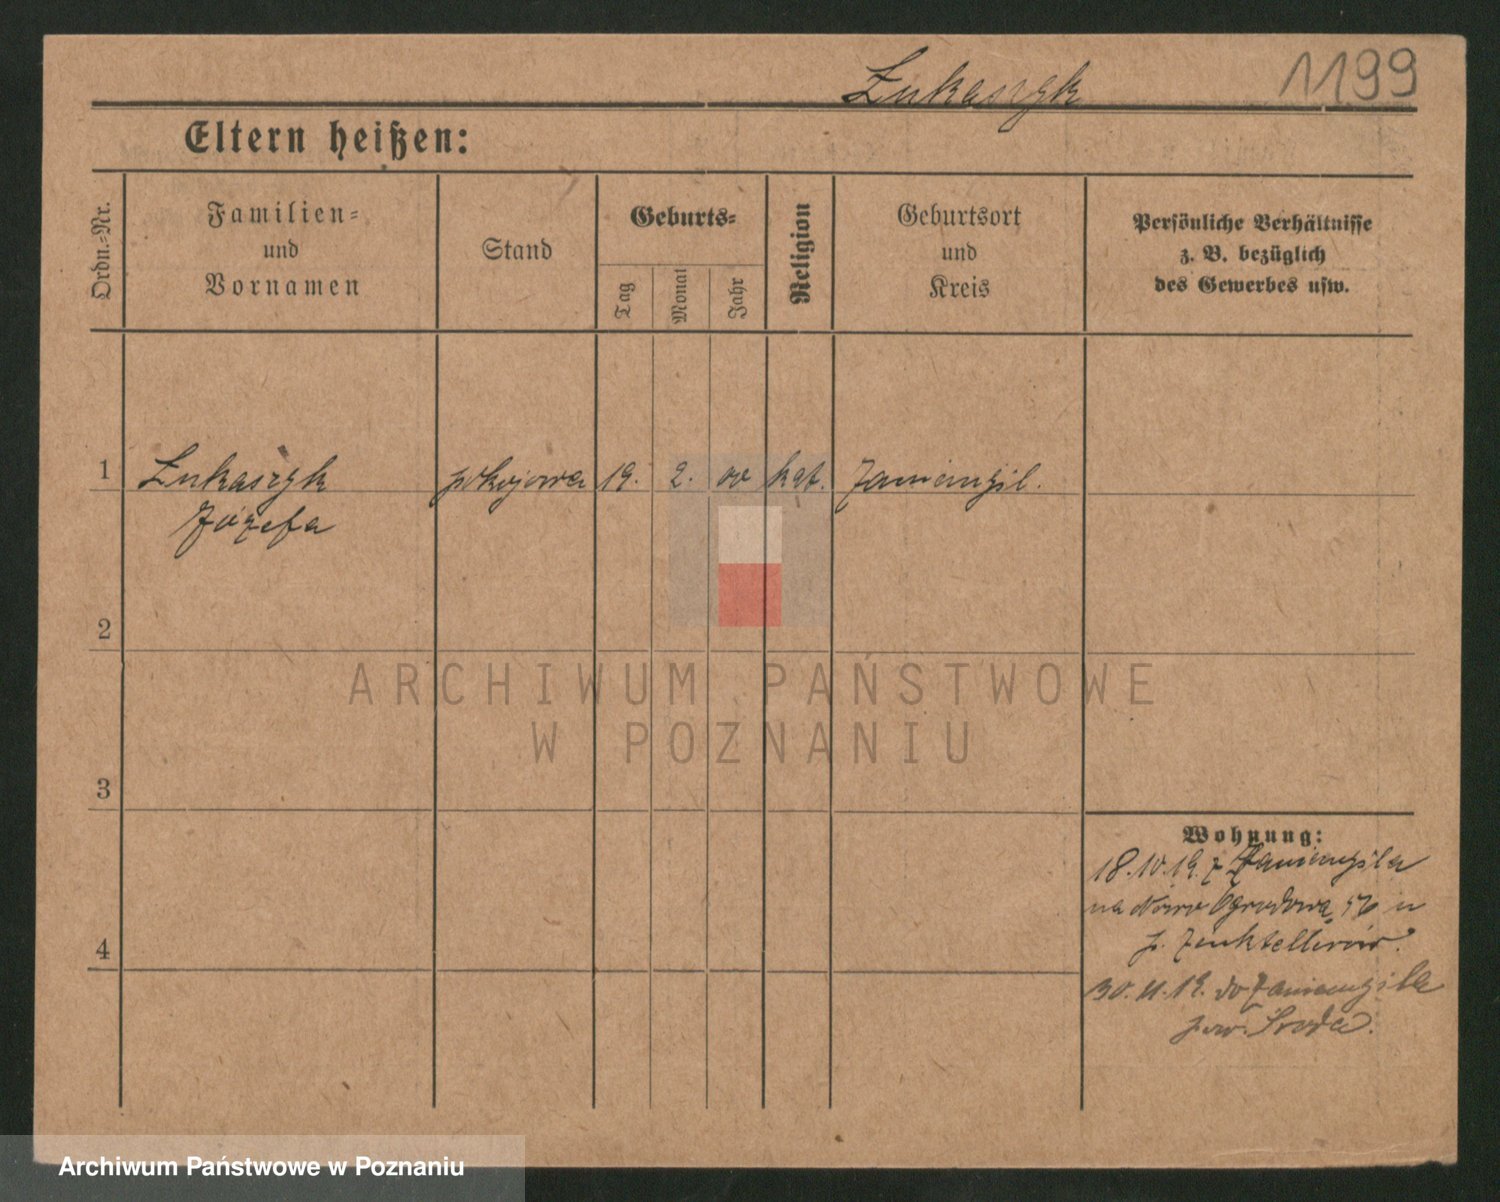 Łukaszyk 1199
Eltern heißen:
Ordn.-Nr.
Familien-
und
Vornamen
Stand
Geburts-
Tag
Monat
Jahr
Religion
Geburtsort
und
Kreis
Persönliche Verhältnisse
z. B. bezüglich
des Gewerbes usw.
1 Łukaszyk pokojowa 19. 2. 00 kat. Zaniemyśl.
Józefa
2
3
4
Wohnung:
18.10.19. z Zaniemyśla
na Nowo Ogrodową 56 u
p. Zenktellerów.
30.11.19. do Zaniemyśla
pow. Środa.
ARCHIWUM PAŃSTWOWE
W POZNANIU
Archiwum Państwowe w Poznaniu